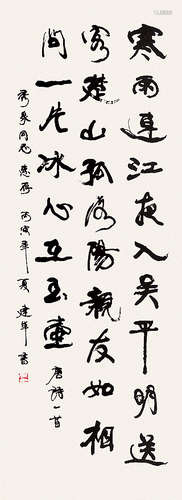 寒雨連江夜入吴平明送
客楚山孤洛陽親友如相
問一片冰心在玉壺
唐詩一首
同志惠存 丙寅年夏 建華書